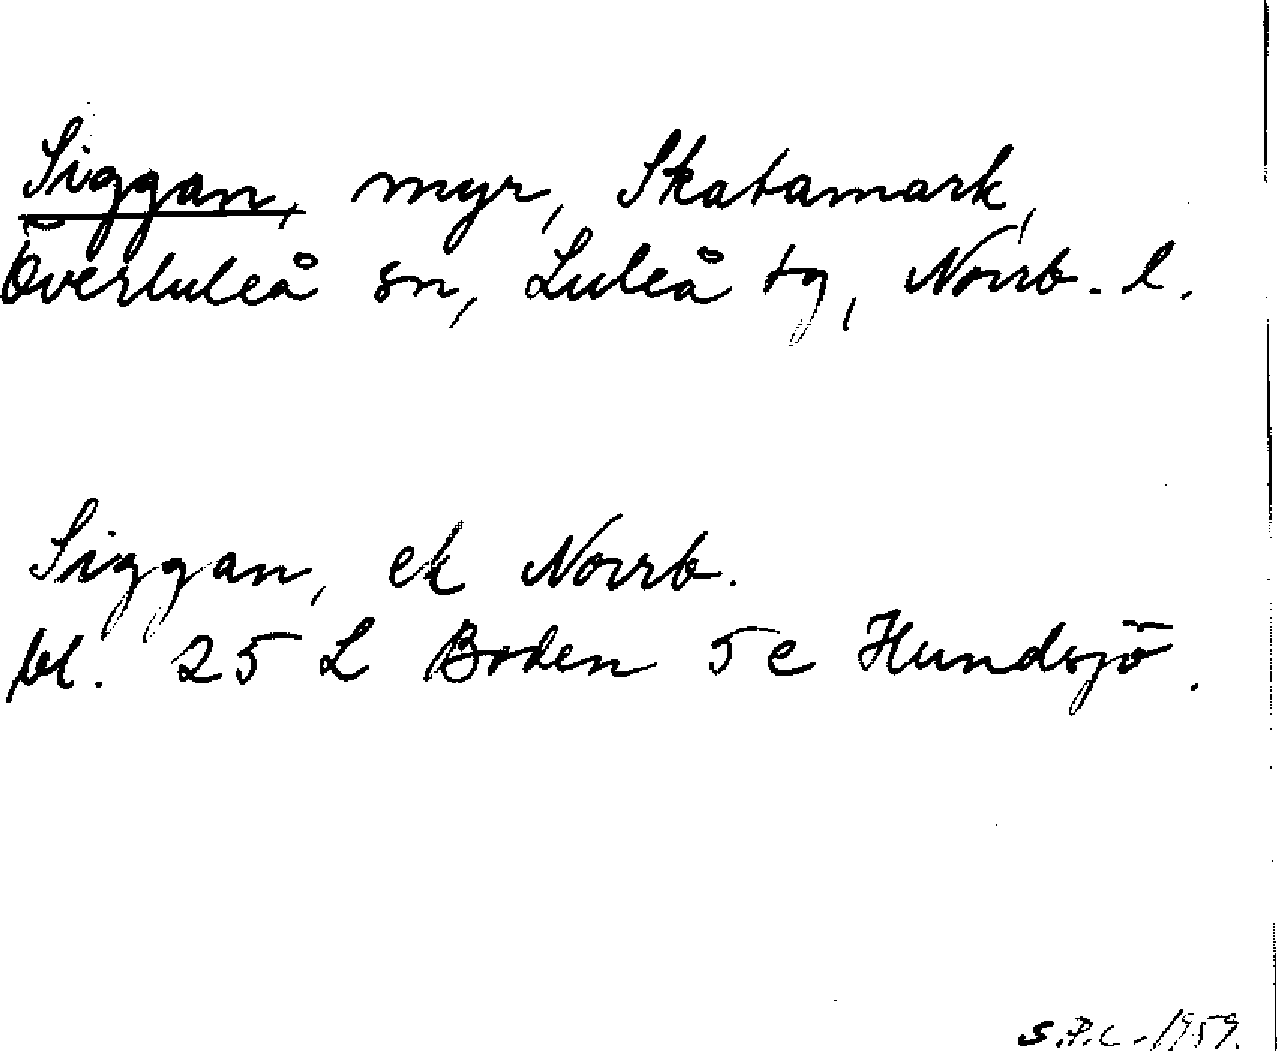 Siggan, myr, Skatamark,
Överluleå sn, Luleå tg, Norrb. l.
Siggan, ek Norrb.
bl. 25 L Boden 5 e Hundsjö.
S.P.C. 1959.